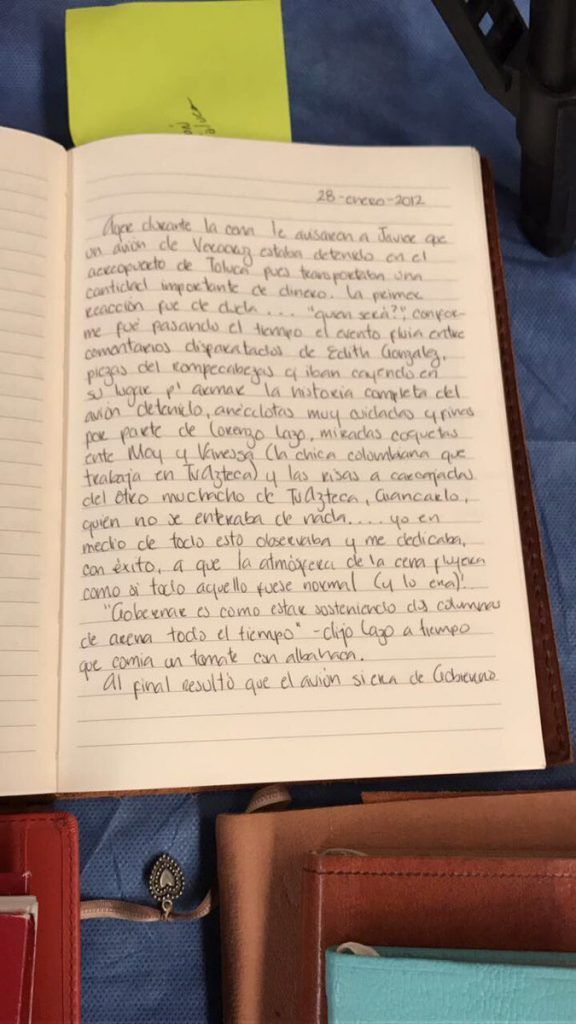 28-enero-2012
Ayer durante la cena le avisaron a Javier que
un avión de Veracruz estaba detenido en el
aereopuerto de Toluca pues transportaban una
cantidad importante de dinero. La primer
reacción fue de duda... "quién será?", confor-
me fue pasando el tiempo el evento fluía entre
comentarios disparatados de Edith González,
piezas del rompecabezas q' iban cayendo en
su lugar p' armar la historia completa del
avión detenido, anécdotas muy cuidadas y finas
por parte de Lorenzo Lazo, miradas coquetas
ente Moy y Vanessa (la chica colombiana que
trabaja en TvAzteca) y las risas a carcajadas
del otro muchacho de TvAzteca, Giancarlo,
quién no se enteraba de nada.... yo en
medio de todo esto observaba y me dedicaba,
con éxito, a que la atmósfera de la cena fluyera
como si todo aquello fuese normal (y lo era)!
"Gobernar es como estar sosteniendo dos columnas
de arena todo el tiempo" -dijo Lazo a tiempo
que comía un tomate con albahaca.
Al final resultó que el avión si era de Gobierno